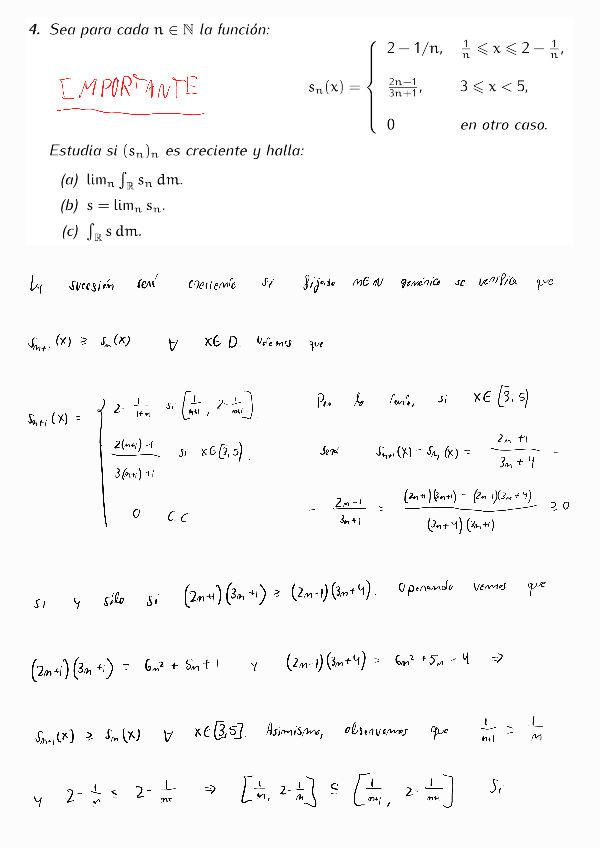 4. Sea para cada n ∈ ℕ la función:
s_n(x) = { 2 − 1/n, 1/n ⩽ x ⩽ 2 − 1/n,
(2n−1)/(3n+1), 3 ⩽ x < 5,
0 en otro caso.
IMPORTANTE
Estudia si (s_n)_n es creciente y halla:
(a) lim_n ∫_ℝ s_n dm.
(b) s = lim_n s_n.
(c) ∫_ℝ s dm.
La sucesión será creciente si fijado n∈ℕ genérico se verifica que
s_{n+1}(x) ≥ s_n(x) ∀ x∈D. Veamos que
s_{n+1}(x) = { 2 - 1/(1+n) si [1/(n+1), 2-1/(n+1)]
(2(n+1)-1)/(3(n+1)+1) si x∈[3,5).
0 C.C
Por lo tanto, si x∈[3,5)
será s_{n+1}(x) - s_n(x) = (2n+1)/(3n+4) -
- (2n-1)/(3n+1) = ((2n+1)(3n+1) - (2n-1)(3n+4))/((3n+4)(3n+1)) ≥ 0
si y sólo si (2n+1)(3n+1) ≥ (2n-1)(3n+4). Operando vemos que
(2n+1)(3n+1) = 6n² + 5n + 1 y (2n-1)(3n+4) = 6n² + 5n - 4 ⇒
s_{n+1}(x) ≥ s_n(x) ∀ x∈[3,5]. Asimismo, observamos que 1/(n+1) ≤ 1/n
y 2 - 1/n ≤ 2 - 1/(n+1) ⇒ [1/n, 2-1/n] ⊆ [1/(n+1), 2 - 1/(n+1)] Si